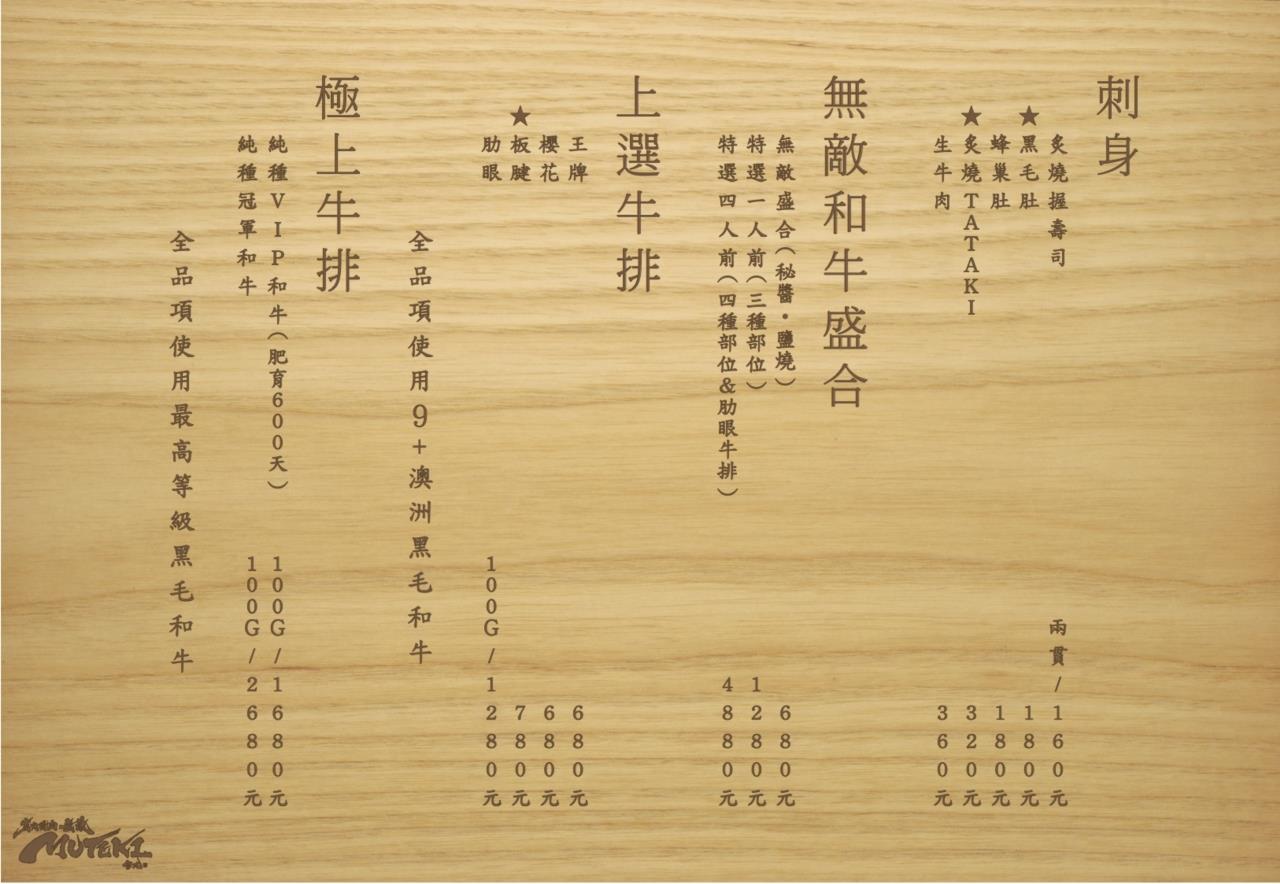 刺身
炙燒握壽司 兩貫/160元
★黑毛肚 180元
蜂巢肚 180元
★炙燒TATAKI 320元
生牛肉 360元
無敵和牛盛合
無敵盛合(秘醬・鹽燒) 680元
特選一人前(三種部位) 1280元
特選四人前(四種部位&肋眼牛排) 4880元
上選牛排
王牌 680元
櫻花 680元
★板腱 780元
肋眼 100G/1280元
全品項使用9+澳洲黑毛和牛
極上牛排
純種VIP和牛(肥育600天) 100G/1680元
純種冠軍和牛 100G/2680元
全品項使用最高等級黑毛和牛
MUTEKI